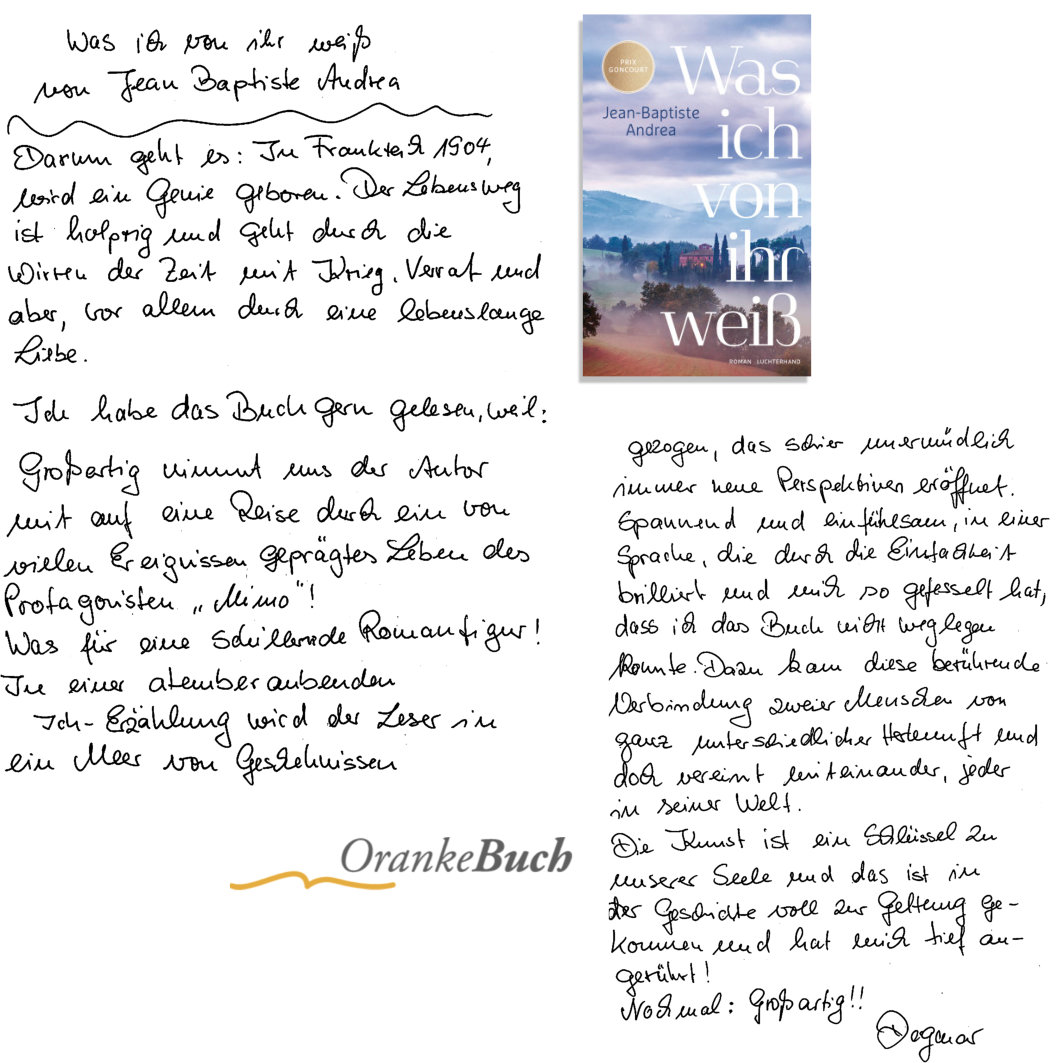 Was ich von ihr weiß
von Jean Baptiste Andrea
Darum geht es: In Frankreich 1904,
wird ein Genie geboren. Der Lebensweg
ist holprig und geht durch die
Wirren der Zeit mit Krieg, Verrat und
aber, vor allem durch eine lebenslange
Liebe.
Ich habe das Buch gern gelesen, weil:
Großartig nimmt uns der Autor
mit auf eine Reise durch ein von
vielen Ereignissen geprägtes Leben des
Protagonisten „Mimo"!
Was für eine schillernde Romanfigur!
In einer atemberaubenden
Ich-Erzählung wird der Leser in
ein Meer von Geschehnissen
PRIX
GONCOURT
Jean-Baptiste
Andrea
Was
ich
von
ihr
weiß
ROMAN LUCHTERHAND
gezogen, das schier unermüdlich
immer neue Perspektiven eröffnet.
Spannend und einfühlsam, in einer
Sprache, die durch die Einfachheit
brilliert und mich so gefesselt hat,
dass ich das Buch nicht weglegen
konnte. Dazu kam diese berührende
Verbindung zweier Menschen von
ganz unterschiedlicher Herkunft und
doch vereint miteinander, jeder
in seiner Welt.
Die Kunst ist ein Schlüssel zu
unserer Seele und das ist in
der Geschichte voll zur Geltung ge-
kommen und hat mich tief an-
gerührt!
Nochmal: Großartig!!
Dagmar
OrankeBuch